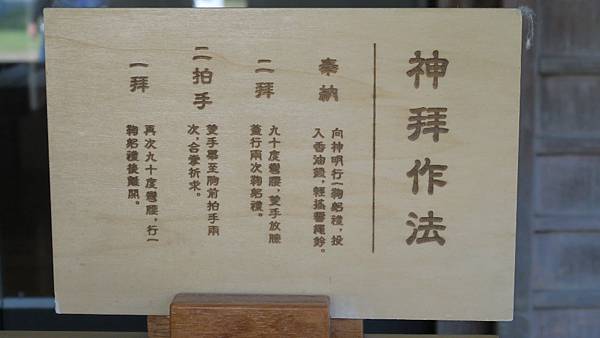 神拜作法
奉納
向神明行一鞠躬禮,投
入香油錢,輕搖響繩鈴。
二拜
九十度彎腰,雙手放膝
蓋行兩次鞠躬禮。
二拍手
雙手舉至胸前拍手兩
次,合掌祈求。
一拜
再次九十度彎腰,行一
鞠躬禮後離開。